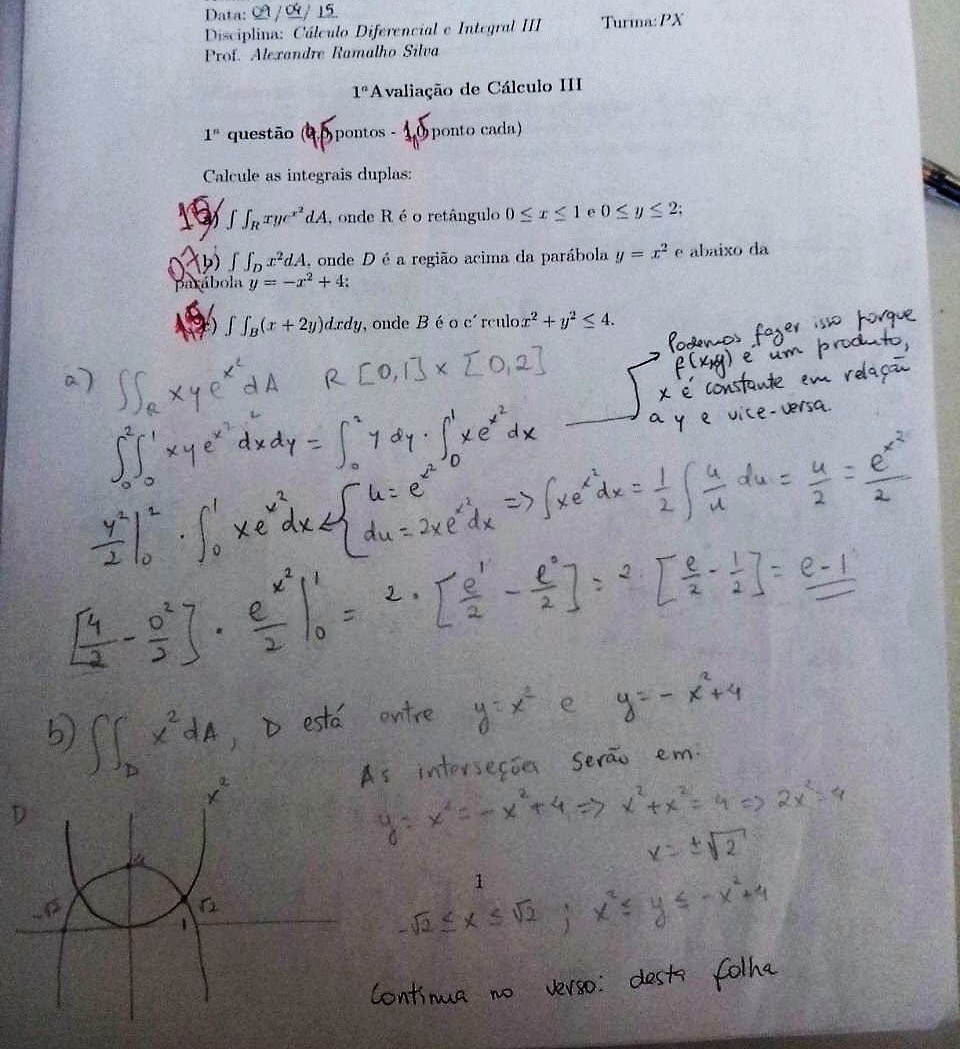 Data: 09/04/15
Disciplina: Cálculo Diferencial e Integral III Turma: PX
Prof. Alexandre Ramalho Silva
1ª Avaliação de Cálculo III
1ª questão (4,5 pontos - 1,5 ponto cada)
Calcule as integrais duplas:
1,5 a) ∫∫_R xye^{x²}dA, onde R é o retângulo 0 ≤ x ≤ 1 e 0 ≤ y ≤ 2;
0,7 b) ∫∫_D x²dA, onde D é a região acima da parábola y = x² e abaixo da
parábola y = −x² + 4;
1,5 c) ∫∫_B (x + 2y)dxdy, onde B é o c´rculo x² + y² ≤ 4.
Podemos fazer isso porque
f(x,y) é um produto,
x é constante em relação
a y e vice-versa.
a) ∫∫_R xye^{x²}dA R [0,1] × [0,2]
∫_0^2 ∫_0^1 xye^{x²}dxdy = ∫_0^2 y dy · ∫_0^1 xe^{x²}dx
y²/2 |_0^2 · ∫_0^1 xe^{x²}dx { u = e^{x²} du = 2xe^{x²}dx => ∫xe^{x²}dx = 1/2 ∫ u/u du = u/2 = e^{x²}/2
[4/2 − 0²/2] · e^{x²}/2 |_0^1 = 2 · [e^1/2 − e^0/2] = 2 · [e/2 − 1/2] = e − 1
b) ∫∫_D x²dA, D está entre y = x² e y = −x² + 4
As interseções serão em:
D x²
y = x² = −x² + 4 => x² + x² = 4 => 2x² = 4
x = ±√2
4
1
−√2 √2
−√2 ≤ x ≤ √2 ; x² ≤ y ≤ −x² + 4
Continua no verso: desta folha